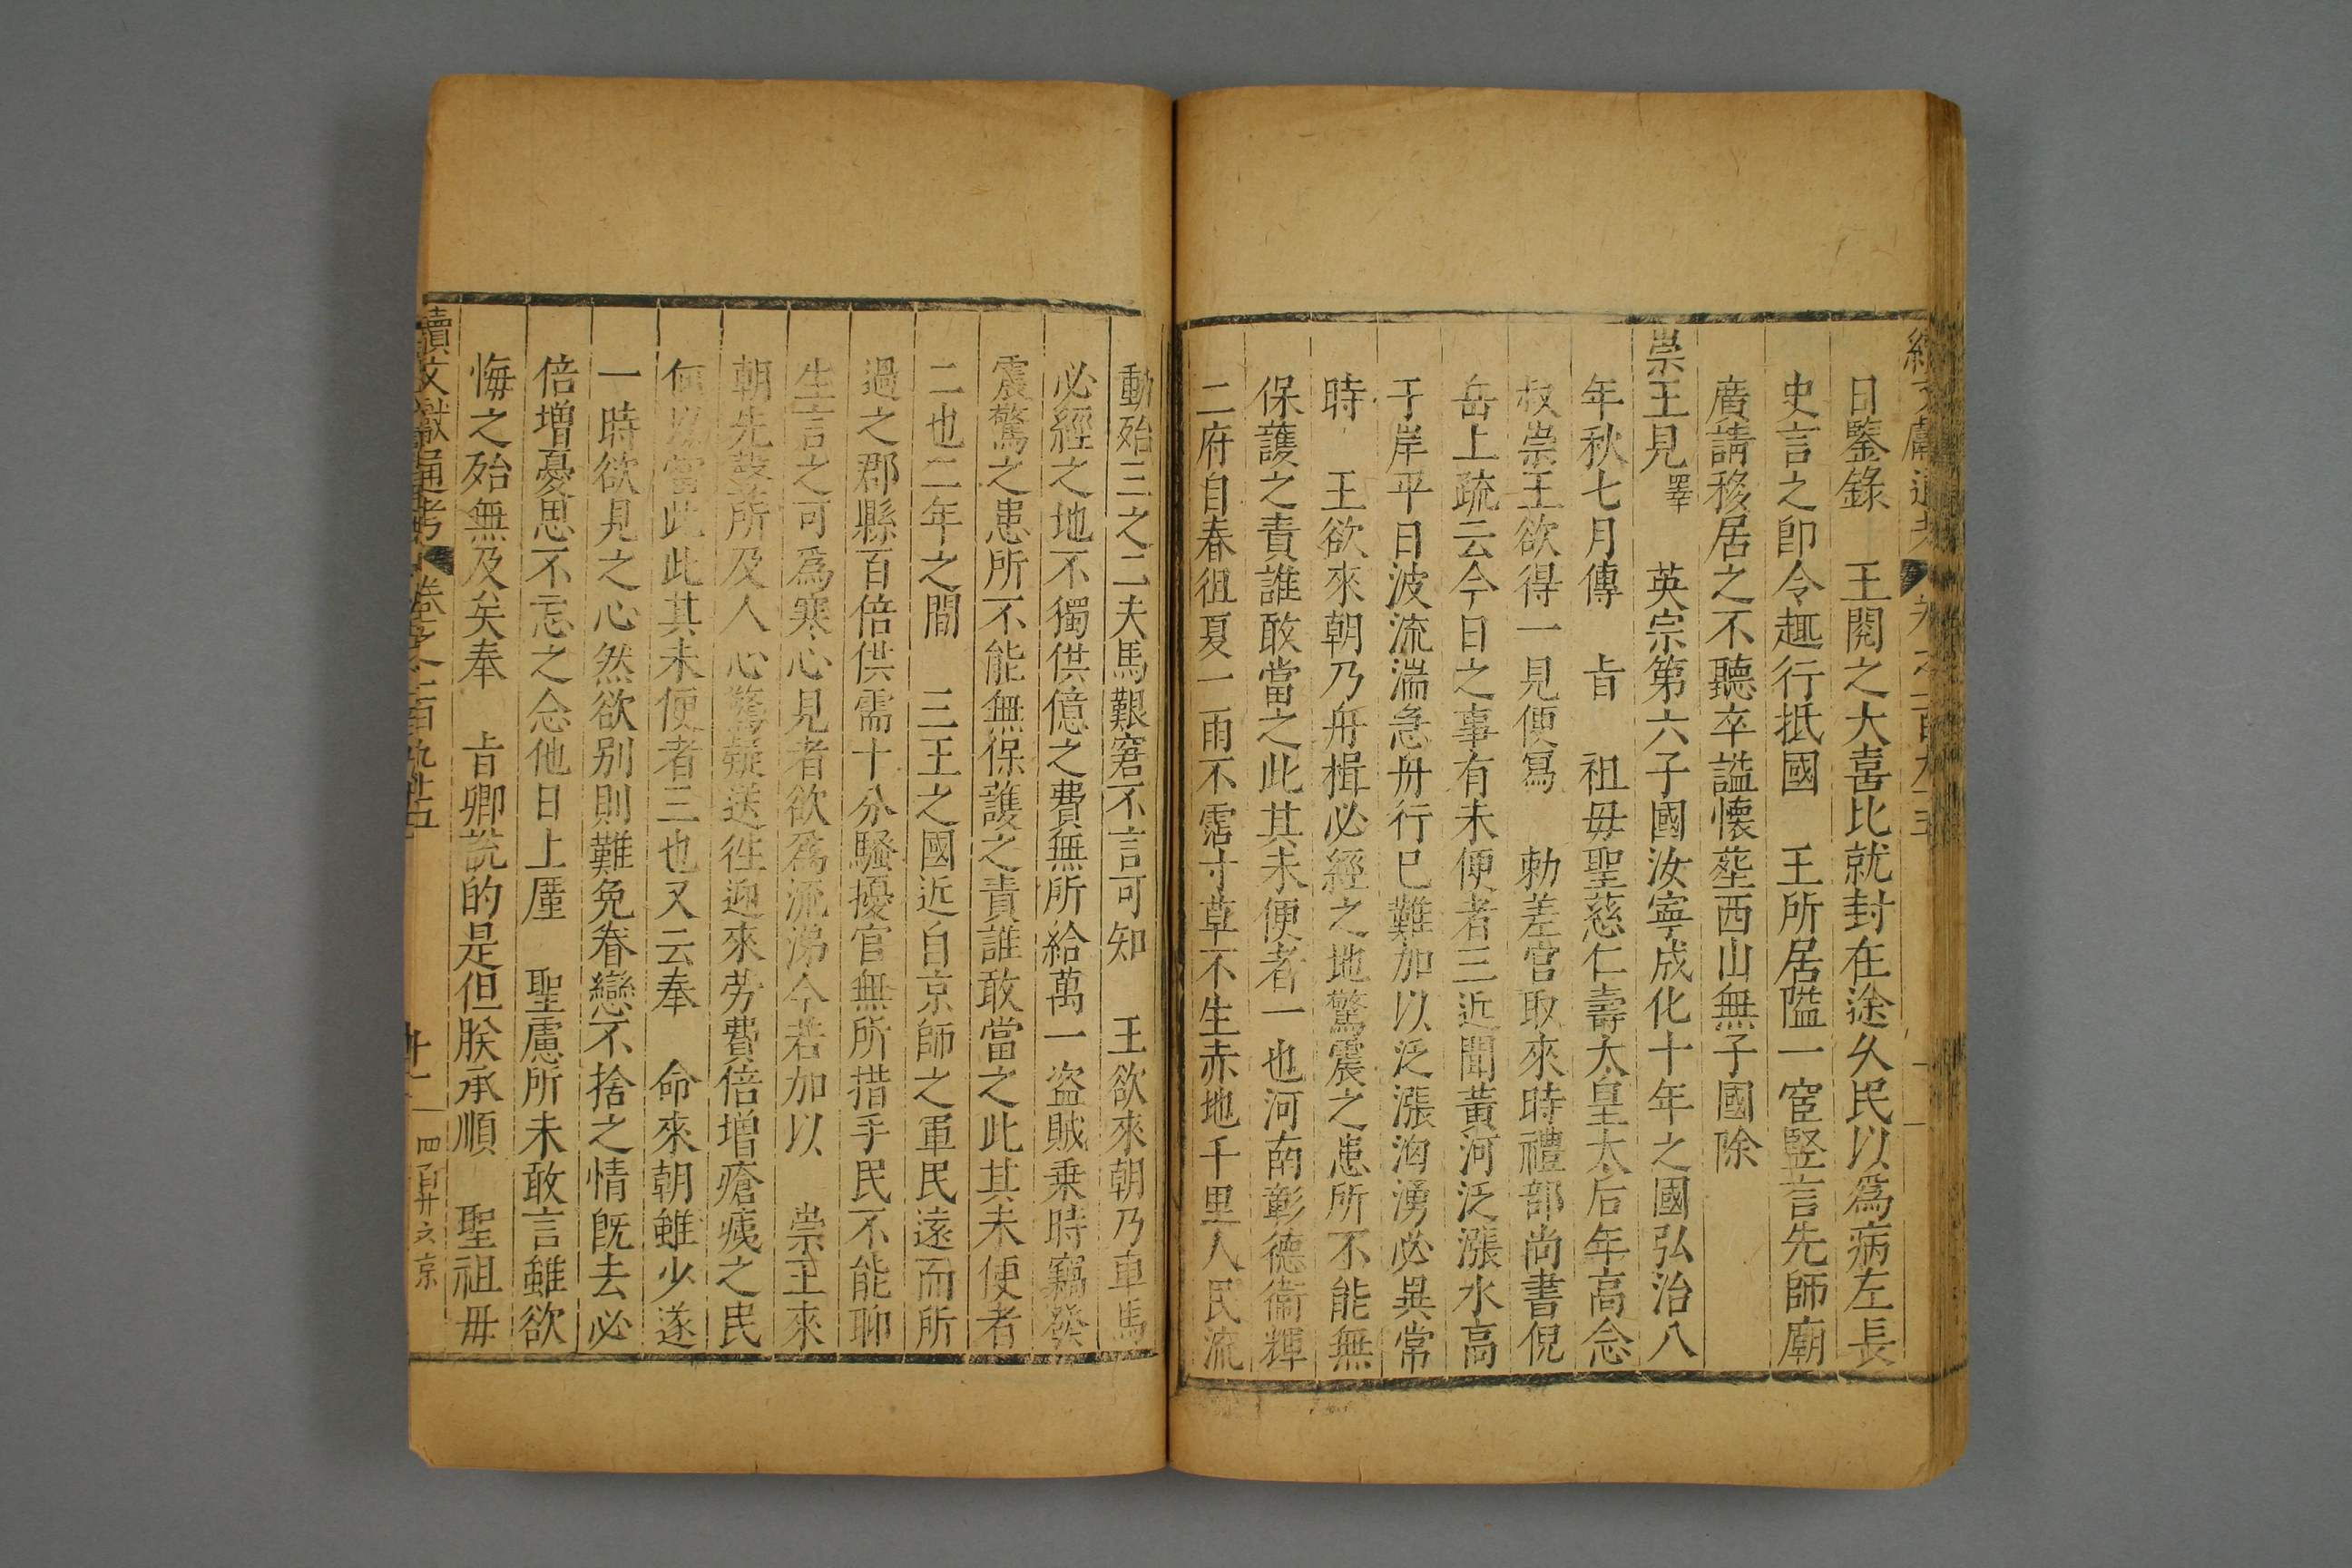 日鑒錄　王閱之大喜比就封在途久民以為病左長
史言之即令趣行抵國　王所居隘一宦竪言先師廟
廣請移居之不聽卒謚懷塟西山無子國除
崇王見澤　英宗第六子國汝寧成化十年之國弘治八
年秋七月傳　㫖　祖母聖慈仁壽太皇太后年高念
叔崇王欲得一見便寫　勅差官取來時禮部尚書倪
岳上疏云今日之事有未便者三近聞黃河泛漲水高
于岸平日波流湍急舟行已難加以泛漲洶湧必異常
時　王欲來朝乃舟楫必經之地驚震之患所不能無
保護之責誰敢當之此其未便者一也河南彰德衛輝
二府自春徂夏一雨不霑寸草不生赤地千里人民流
動殆三之二夫馬艱窘不言可知　王欲來朝乃車馬
必經之地不獨供億之費無所給萬一盜賊乗時竊發
震驚之患所不能無保護之責誰敢當之此其未便者
二也二年之間　三王之國近自京師之軍民遠而所
過之郡縣百倍供需十分騷擾官無所措手民不能聊
生言之可為寒心見者欲為流涕今若加以　崇王來
朝先聲所及人心驚疑送徃迎來勞費倍增瘡痍之民
何以當此此其未便者三也又云奉　命來朝雖少遂
一時欲見之心然欲别則難免眷戀不捨之情旣去必
倍增憂思不忘之念他日上厪　聖慮所未敢言雖欲
悔之殆無及矣奉　㫖卿說的是但朕承順　聖祖母
續文獻通考　卷之二百九十五　十二　四百廿六　京